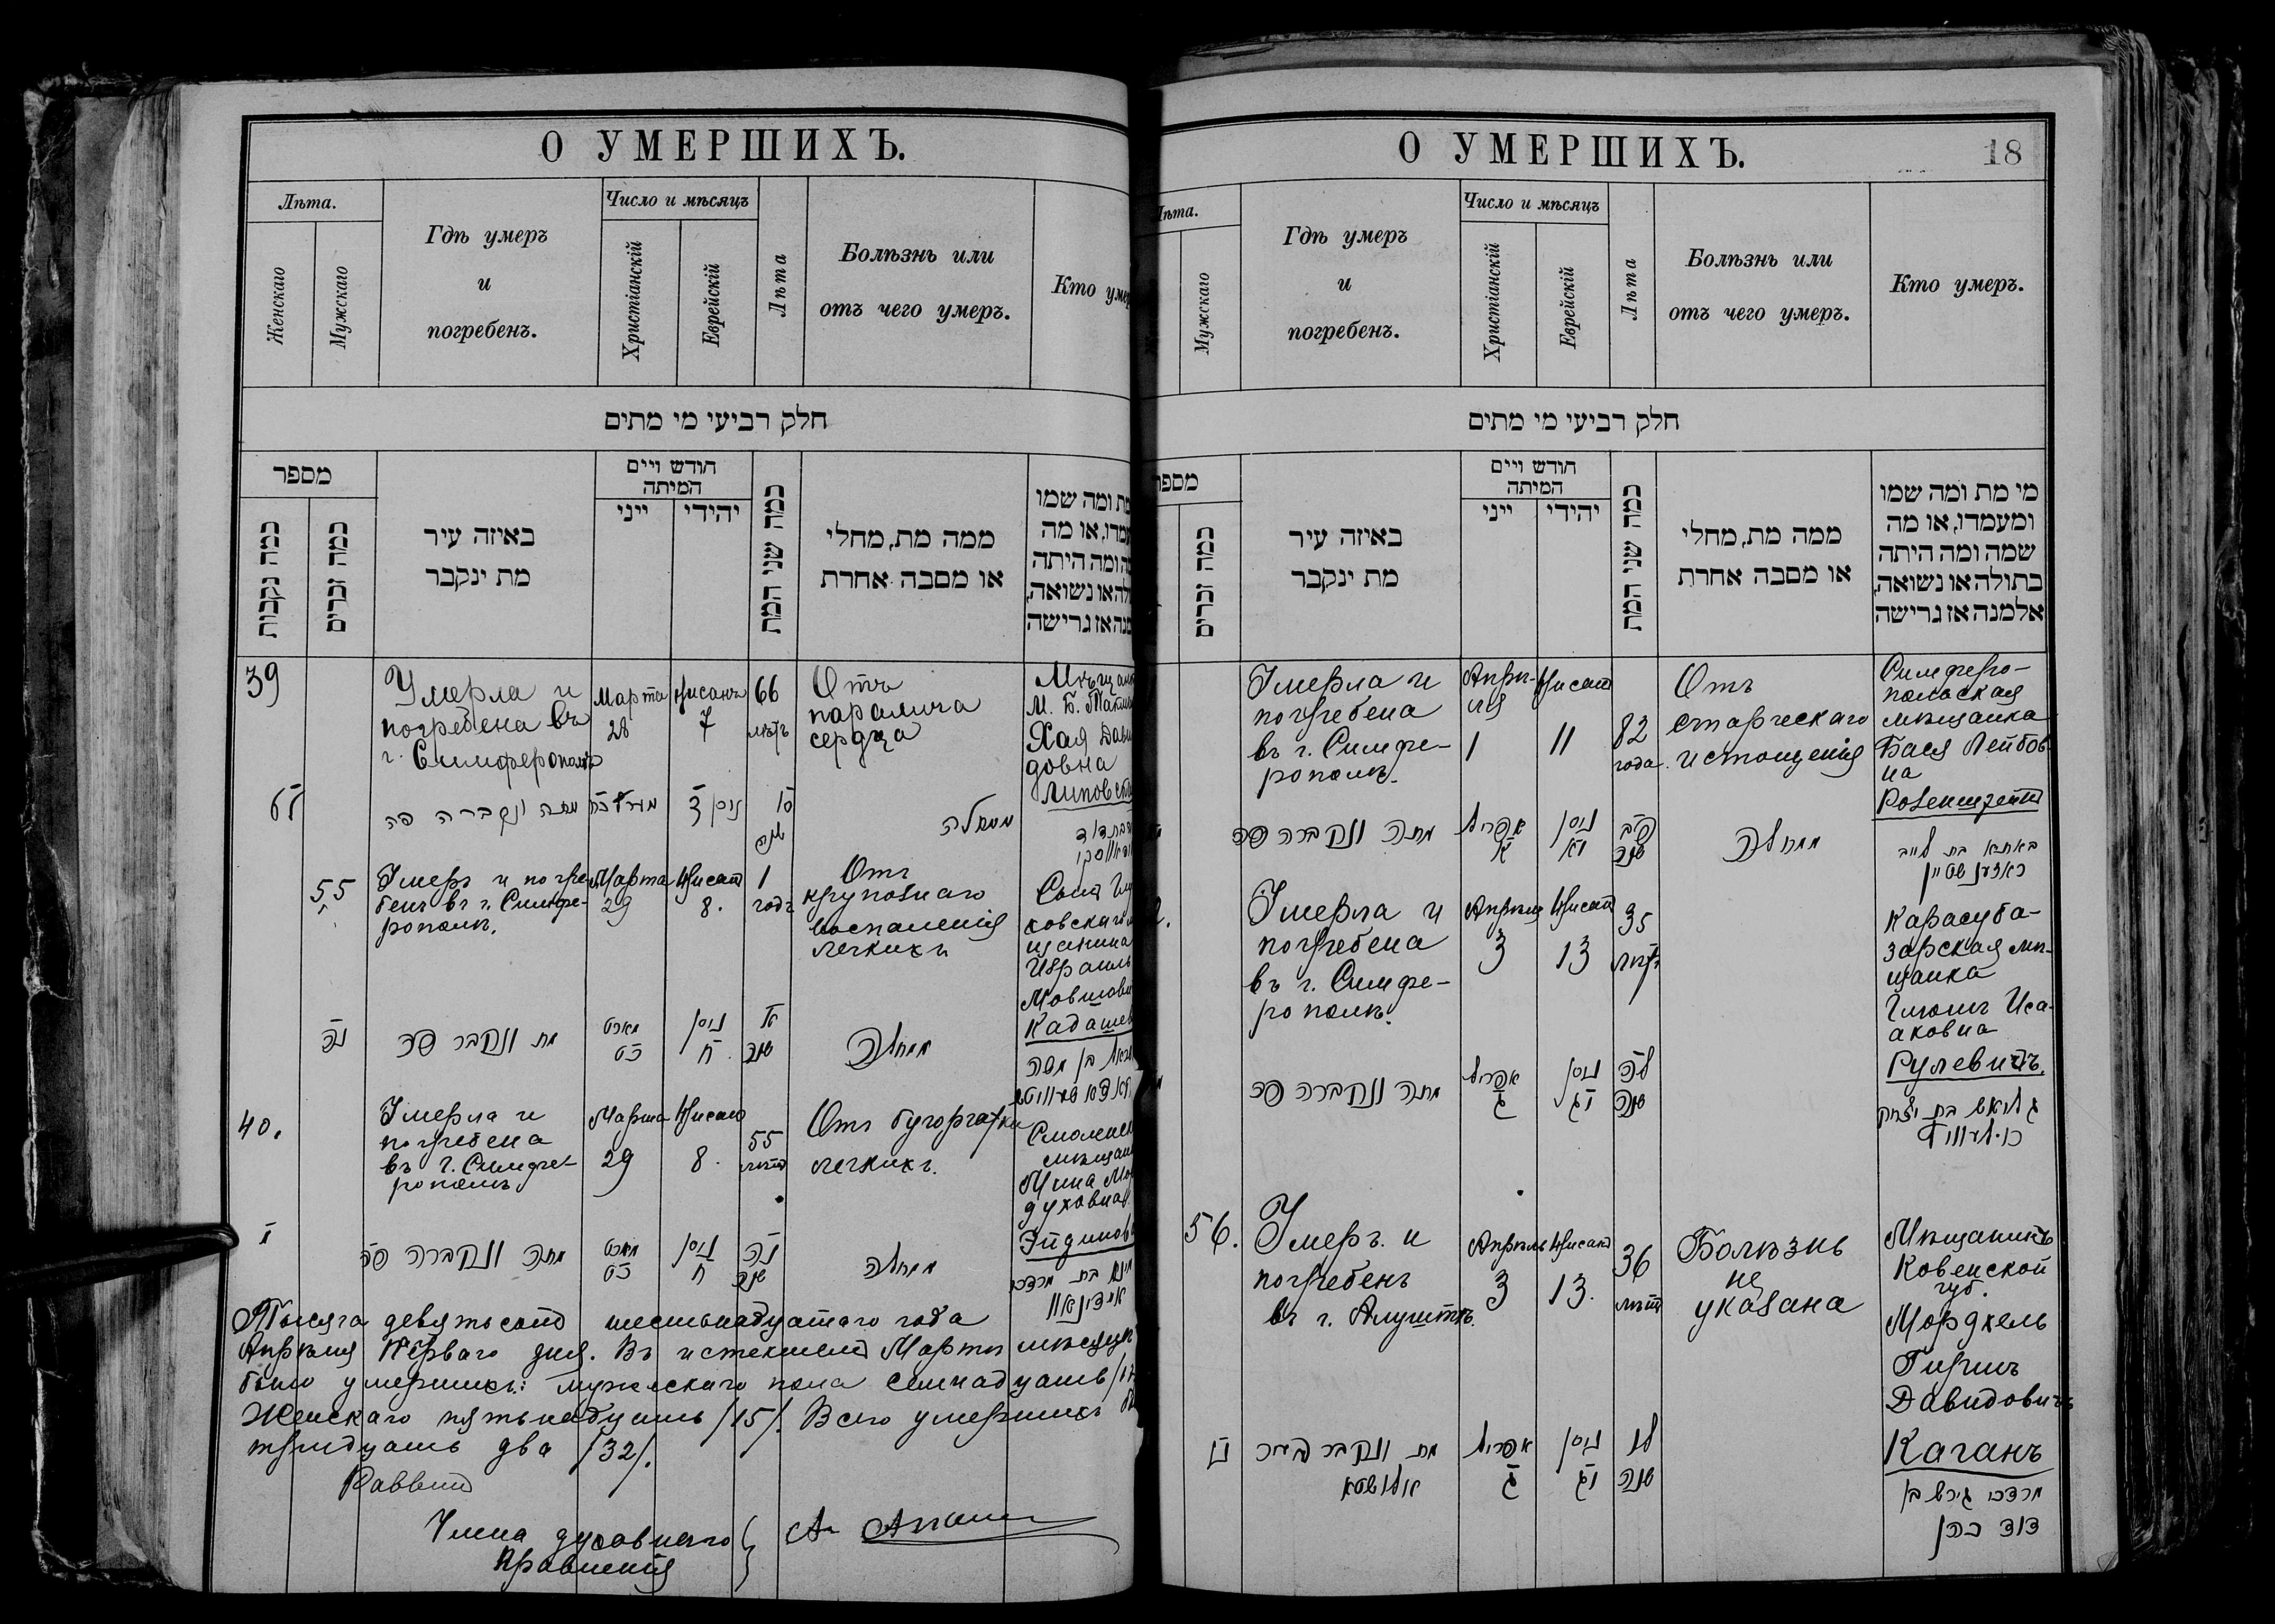 О УМЕРШИХЪ.
Лѣта.
Женскаго
Мужскаго
Гдѣ умеръ
и
погребенъ.
Число и мѣсяцъ
Христіанскій
Еврейскій
Лѣта
Болѣзнь или
отъ чего умеръ.
Кто умер
חלק רביעי מי מתים
מספר
כמה נקבות
כמה זכרים
באיזה עיר
מת ינקבר
חודש ויים
המיתה
ייני
יהודי
כמה שני המת
ממה מת, מחלי
או מסבה אחרת
מת ומה שמו
מעמדו, או מה
מה ומה היתה
ולה או נשואה,
מנה אז גרישה
39
Умерла и
погребена въ
г. Симферополѣ
Марта
28
Нисанъ
7
66
лѣтъ
Отъ
паралича
сердца
Мѣщан
М. Б.
Хая Дави
довна
Липовск
לט
מתה ונקברה פה
ניסן ז
שנה
ממחלה
בת דוד
55
Умеръ и погре
бенъ въ г. Симфе-
рополѣ.
Марта
29
Нисана
8.
1
годъ
Отъ
крупознаго
воспаленія
легкихъ
Сынъ
ковскаго
щанина
Израиль
Мовшови
Кадашев
נה
מת ונקבר פה
מארט
כט
ניסן
ח
א
שנה
ממחלה
בן משה
40.
Умерла и
погребена
въ г. Симфе-
рополѣ
Марта
29
Нисана
8.
55
лѣтъ
Отъ бугорчатки
легкихъ.
Смоленск
мѣщан
Мина Мор
духовна
Эйдинов
מ
מתה ונקברה פה
מארט
כט
ניסן
ח
נה
שנה
ממחלה
בת מרדכי
Тысяча девятьсотъ шестьнадцатаго года
Апрѣля Перваго дня. Въ истекшемъ Мартѣ мѣсяцѣ
было умершихъ: мужескаго пола семнадцать /17
Женскаго пятьнадцать /15/. Всего умершихъ
тридцать два /32/.
Раввинъ
Члена духовнаго
Правленія
О УМЕРШИХЪ.
18
ѣта.
Мужскаго
Гдѣ умеръ
и
погребенъ.
Число и мѣсяцъ
Христіанскій
Еврейскій
Лѣта
Болѣзнь или
отъ чего умеръ.
Кто умеръ.
חלק רביעי מי מתים
מספר
כמה זכרים
באיזה עיר
מת ינקבר
חודש ויים
המיתה
ייני
יהודי
כמה שני המת
ממה מת, מחלי
או מסבה אחרת
מי מת ומה שמו
ומעמדו, או מה
שמה ומה היתה
בתולה או נשואה,
אלמנה אז גרישה
Умерла и
погребена
въ г. Симфе-
рополѣ.
Апрѣ-
ля
1
Нисана
11
82
года.
Отъ
старческаго
истощенія
Симферо-
польская
мѣщанка
Бася Лейбов-
на
Розенштейнъ
מתה ונקברה פה
אפריל
א
ניסן
יא
פב
שנה
ממחלה
באסיא בת לייב
ראזענשטיין
Умерла и
погребена
въ г. Симфе-
рополѣ.
Апрѣля
3
Нисана
13
35
лѣтъ
Карасуба-
зарская мѣ-
щанка
Гмюшъ Иса-
аковна
Гулевичъ.
מתה ונקברה פה
אפריל
ג
ניסן
יג
לה
שנה
בת יצחק
56.
Умеръ и
погребенъ
въ г. Алуштѣ.
Апрѣль
3
Нисана
13.
36
лѣтъ
Болѣзнь
не
указана
Мѣщанинъ
Ковенской
губ.
Мордхель
Гиршъ
Давидовичъ
Каганъ
נו
מת ונקבר בעיר
אלושטא
אפריל
ג
ניסן
יג
לו
שנה
מרדכי גירש בן
דוד כהן